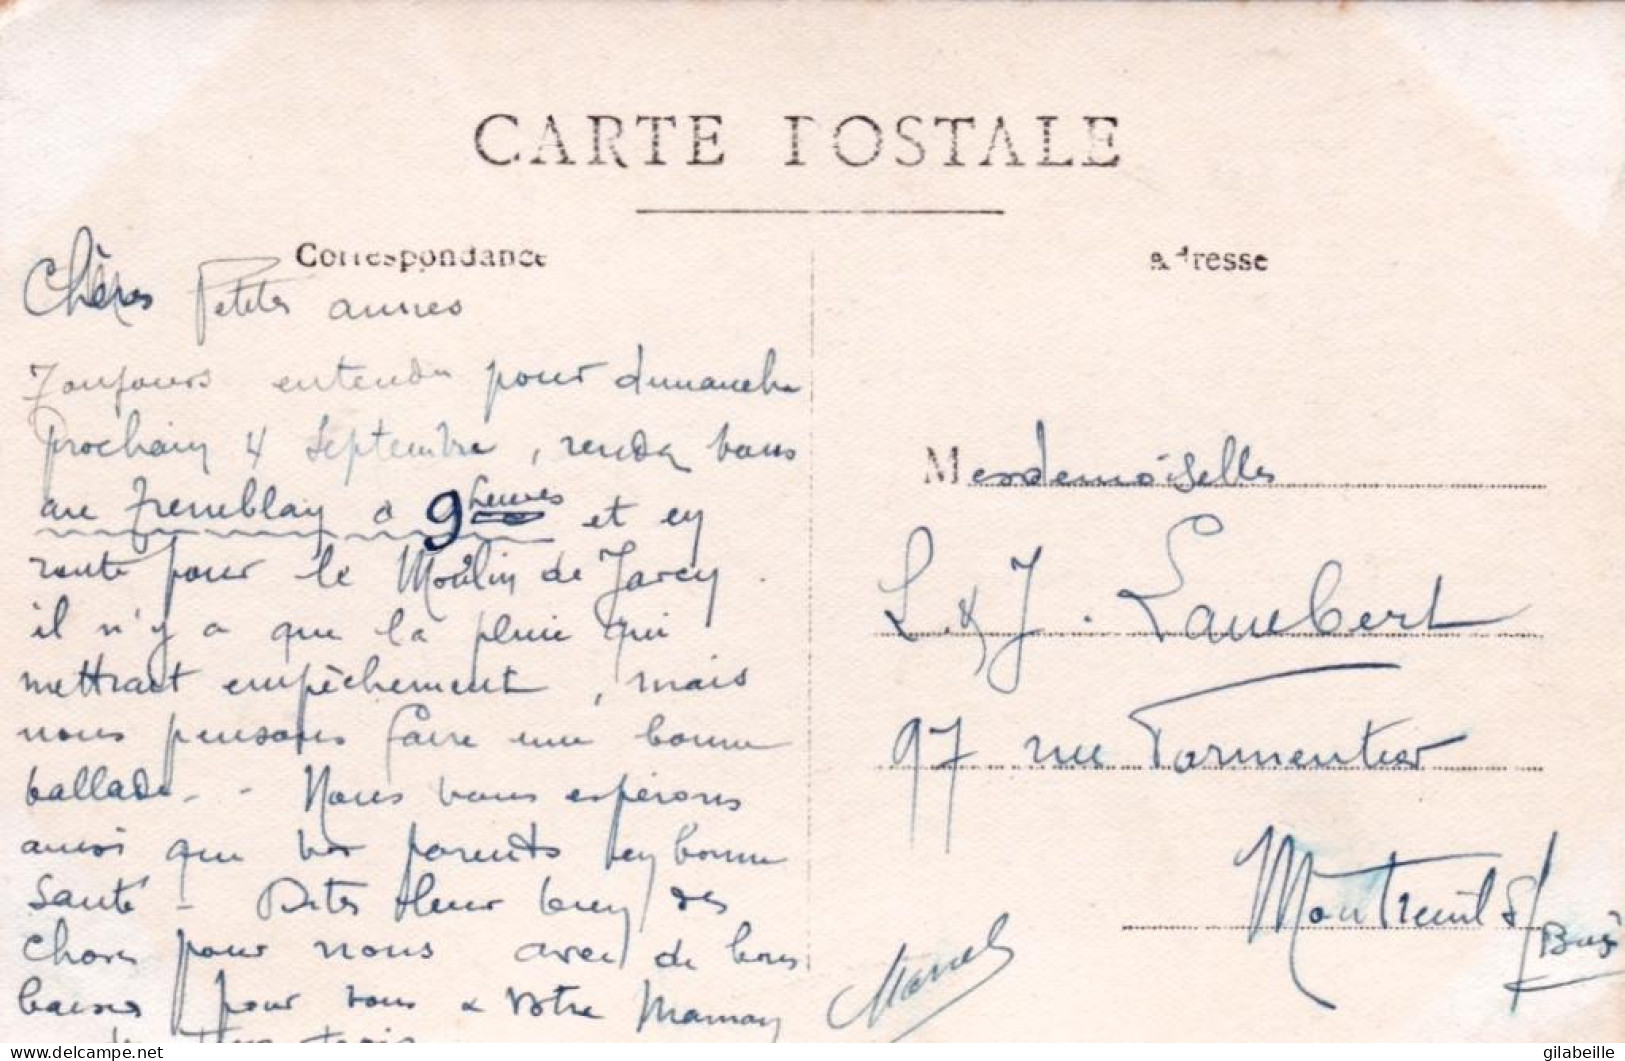 CARTE POSTALE
Correspondance
Adresse
Chères Petites amies
Toujours entendu pour dimanche
prochain 4 Septembre, rendez vous
au Tremblay à 9 heures et en
route pour le Moulin de Jarcy.
il n'y a que la pluie qui
mettrait empêchement, mais
nous pensons faire une bonne
ballade - - Nous vous espérons
ainsi que vos parents en bonne
Santé - Dites leur bien des
choses pour nous avec de bons
baisers pour vous & votre Maman
trois
Mesdemoiselles
L. & J. Lambert
97 rue Parmentier
Montreuil s/ Bois
Marcel
delcampe.net
gilabeille